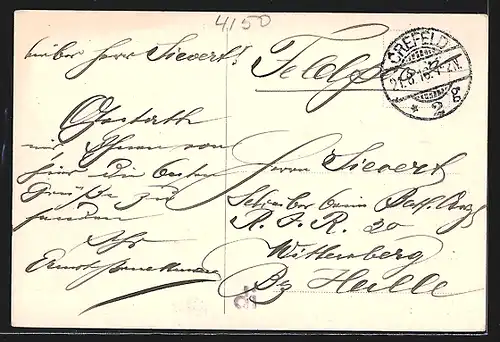 4/50
Lieber Herr Sievert!
Gestatte
mir, Ihnen von
hier die besten
Grüße zu
senden
Ihr
Feldp
CREFELD
* 2 *
Herrn Sievert
Schreiber beim
R. I. R. 20
Wittenberg
Bz Halle